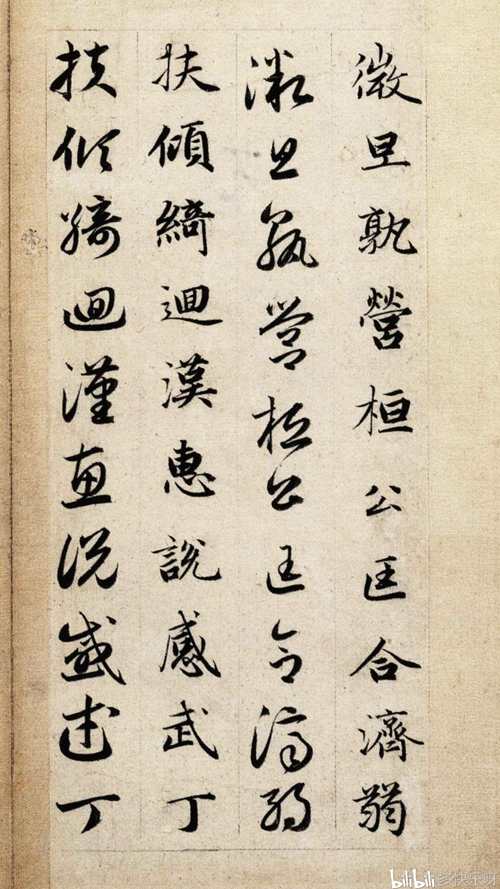 微旦孰營桓公匡合濟弱
微旦孰營桓公匡合濟弱
扶傾綺迴漢惠說感武丁
扶傾綺迴漢惠說感武丁
bilibili